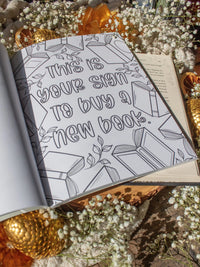 THIS IS
YOUR SIGN
TO BUY A
NEW BOOK.